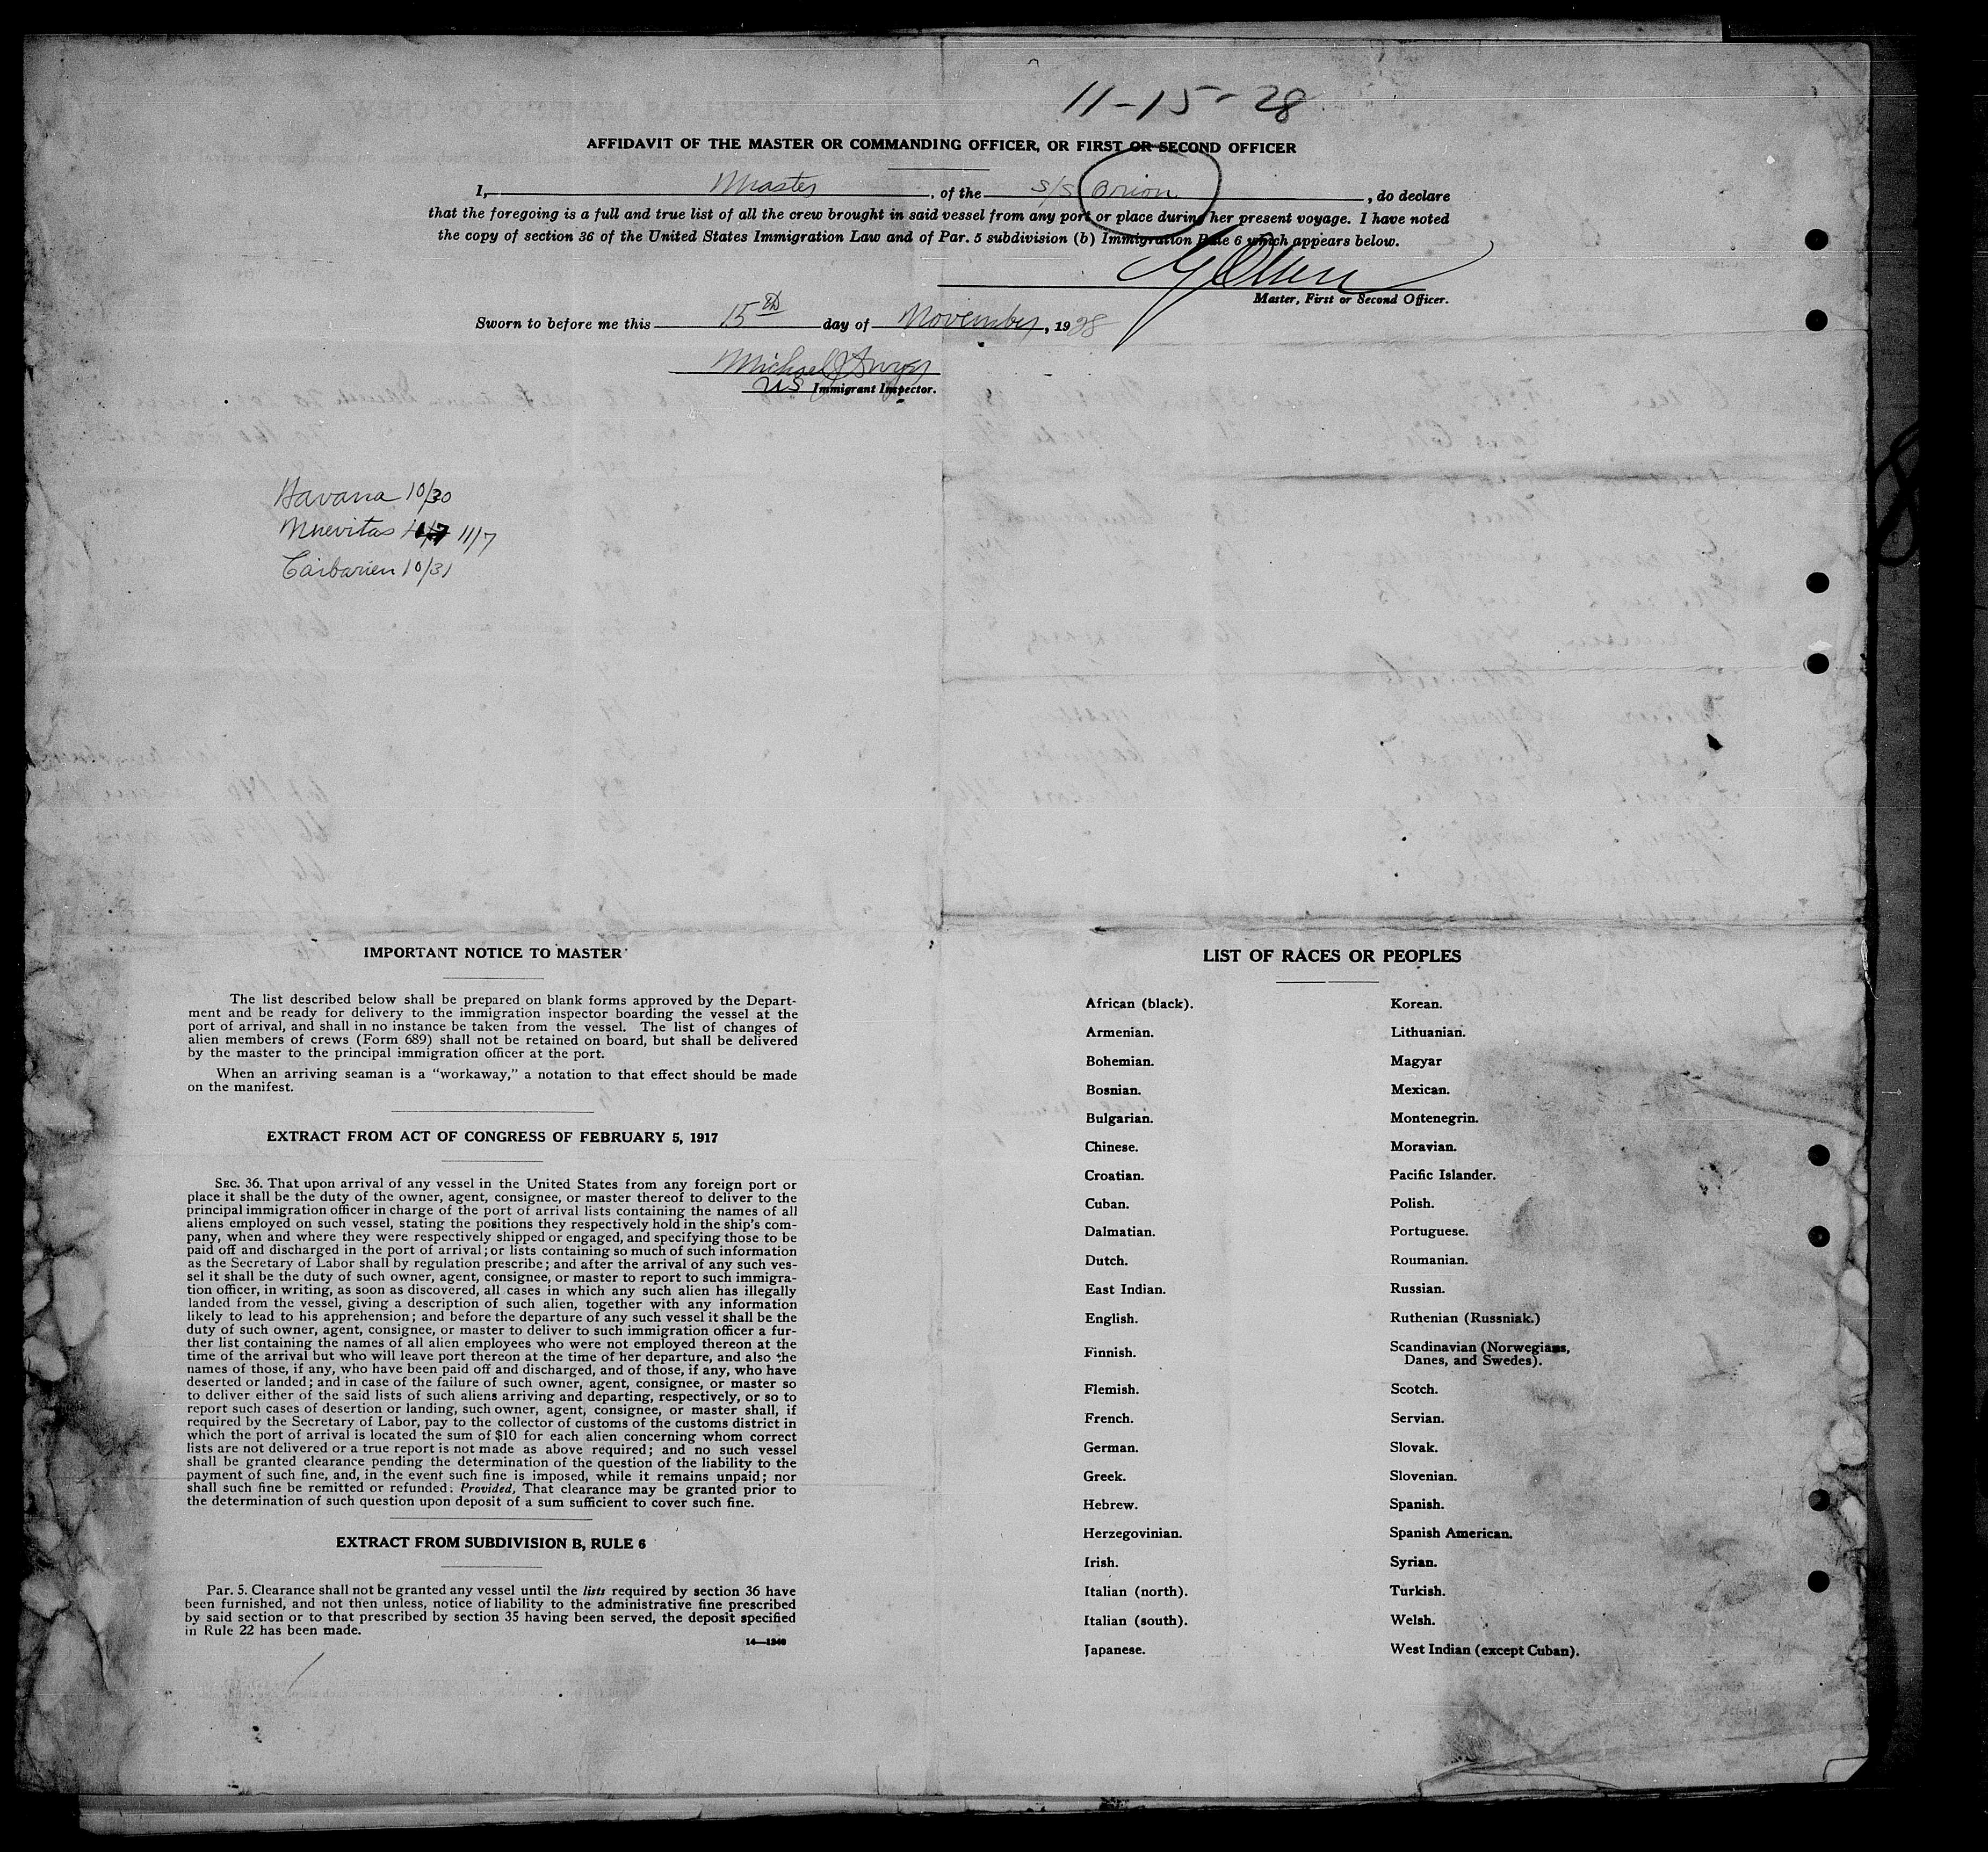 11-15-28
AFFIDAVIT OF THE MASTER OR COMMANDING OFFICER, OR FIRST OR SECOND OFFICER
I, Master, of the S/S Orion, do declare
that the foregoing is a full and true list of all the crew brought in said vessel from any port or place during her present voyage. I have noted
the copy of section 36 of the United States Immigration Law and of Par. 5 subdivision (b) Immigration Rule 6 which appears below.
Master, First or Second Officer.
Sworn to before me this 15th day of November, 1928
Michael
US Immigrant Inspector.
Havana 10/30
Nuevitas 11/7
Caibarien 10/31
IMPORTANT NOTICE TO MASTER
The list described below shall be prepared on blank forms approved by the Depart-
ment and be ready for delivery to the immigration inspector boarding the vessel at the
port of arrival, and shall in no instance be taken from the vessel. The list of changes of
alien members of crews (Form 689) shall not be retained on board, but shall be delivered
by the master to the principal immigration officer at the port.
When an arriving seaman is a "workaway," a notation to that effect should be made
on the manifest.
EXTRACT FROM ACT OF CONGRESS OF FEBRUARY 5, 1917
SEC. 36. That upon arrival of any vessel in the United States from any foreign port or
place it shall be the duty of the owner, agent, consignee, or master thereof to deliver to the
principal immigration officer in charge of the port of arrival lists containing the names of all
aliens employed on such vessel, stating the positions they respectively hold in the ship's com-
pany, when and where they were respectively shipped or engaged, and specifying those to be
paid off and discharged in the port of arrival; or lists containing so much of such information
as the Secretary of Labor shall by regulation prescribe; and after the arrival of any such ves-
sel it shall be the duty of such owner, agent, consignee, or master to report to such immigra-
tion officer, in writing, as soon as discovered, all cases in which any such alien has illegally
landed from the vessel, giving a description of such alien, together with any information
likely to lead to his apprehension; and before the departure of any such vessel it shall be the
duty of such owner, agent, consignee, or master to deliver to such immigration officer a fur-
ther list containing the names of all alien employees who were not employed thereon at the
time of the arrival but who will leave port thereon at the time of her departure, and also the
names of those, if any, who have been paid off and discharged, and of those, if any, who have
deserted or landed; and in case of the failure of such owner, agent, consignee, or master so
to deliver either of the said lists of such aliens arriving and departing, respectively, or so to
report such cases of desertion or landing, such owner, agent, consignee, or master shall, if
required by the Secretary of Labor, pay to the collector of customs of the customs district in
which the port of arrival is located the sum of $10 for each alien concerning whom correct
lists are not delivered or a true report is not made as above required; and no such vessel
shall be granted clearance pending the determination of the question of the liability to the
payment of such fine, and, in the event such fine is imposed, while it remains unpaid; nor
shall such fine be remitted or refunded: Provided, That clearance may be granted prior to
the determination of such question upon deposit of a sum sufficient to cover such fine.
EXTRACT FROM SUBDIVISION B, RULE 6
Par. 5. Clearance shall not be granted any vessel until the lists required by section 36 have
been furnished, and not then unless, notice of liability to the administrative fine prescribed
by said section or to that prescribed by section 35 having been served, the deposit specified
in Rule 22 has been made.
14—1240
LIST OF RACES OR PEOPLES
African (black).
Armenian.
Bohemian.
Bosnian.
Bulgarian.
Chinese.
Croatian.
Cuban.
Dalmatian.
Dutch.
East Indian.
English.
Finnish.
Flemish.
French.
German.
Greek.
Hebrew.
Herzegovinian.
Irish.
Italian (north).
Italian (south).
Japanese.
Korean.
Lithuanian.
Magyar
Mexican.
Montenegrin.
Moravian.
Pacific Islander.
Polish.
Portuguese.
Roumanian.
Russian.
Ruthenian (Russniak.)
Scandinavian (Norwegians,
Danes, and Swedes).
Scotch.
Servian.
Slovak.
Slovenian.
Spanish.
Spanish American.
Syrian.
Turkish.
Welsh.
West Indian (except Cuban).